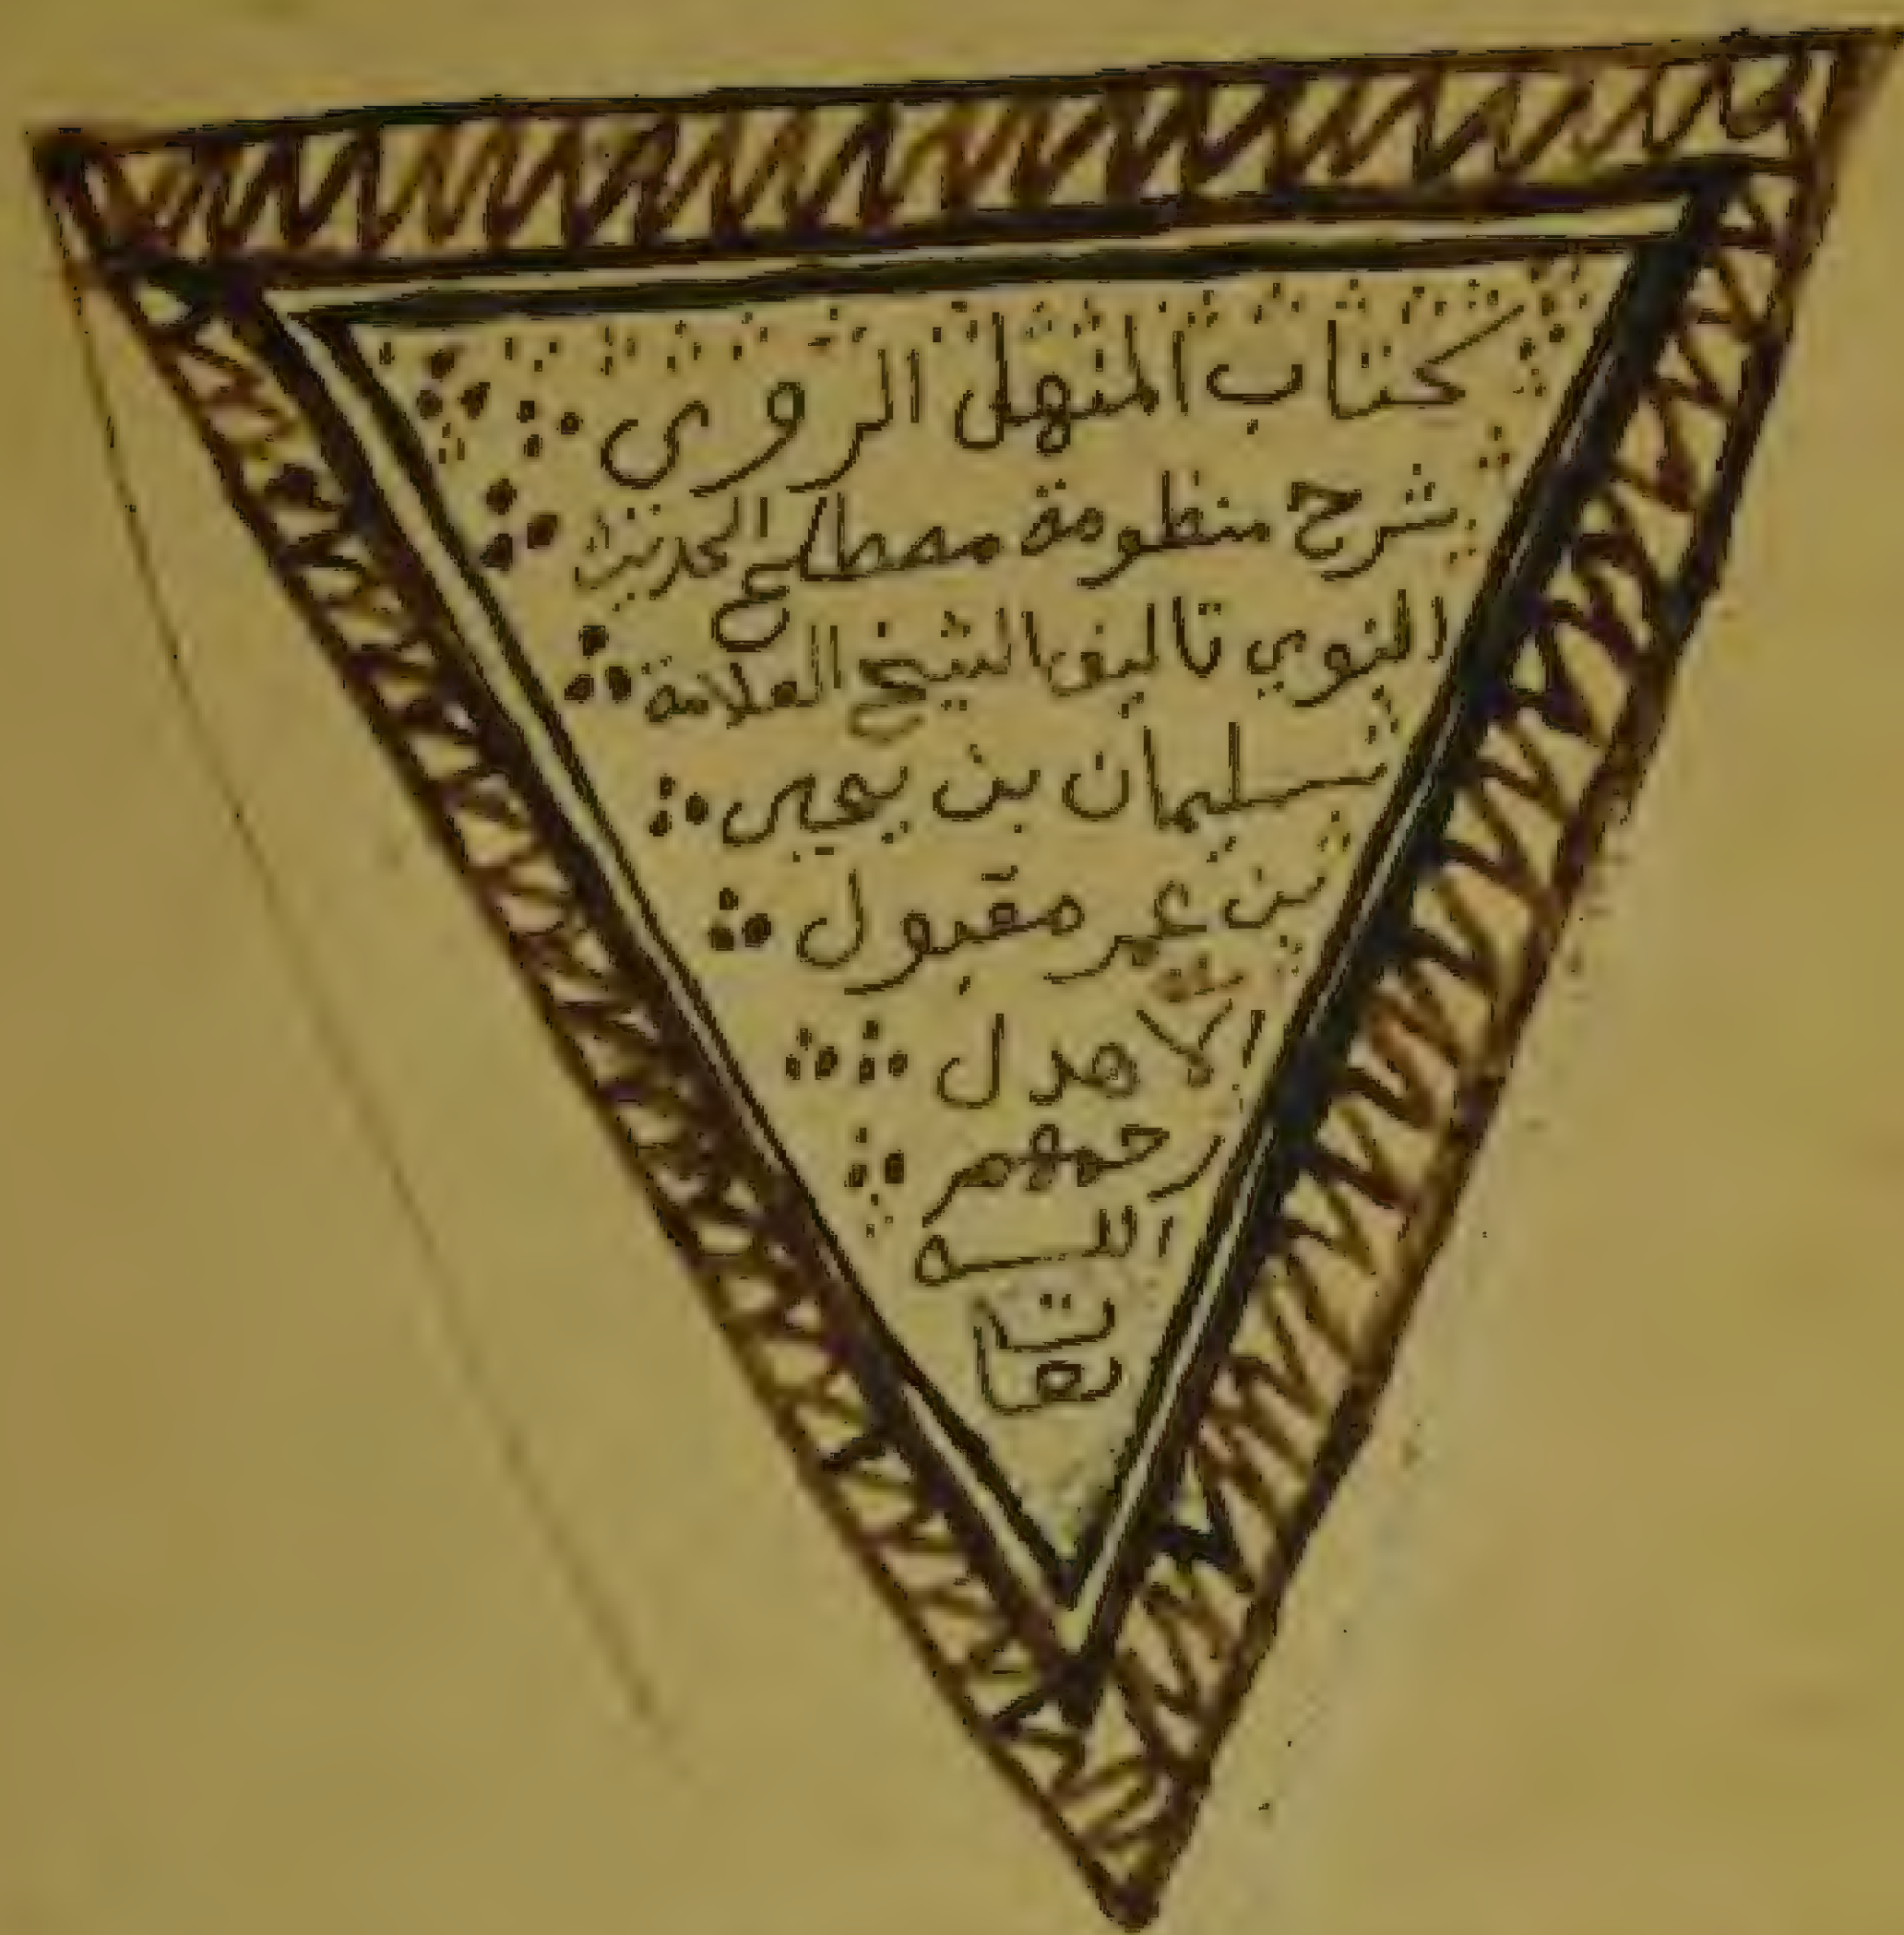 كتاب المنهل الروى
شرح منظومة مصطلح الحديث
النبوي تاليف الشيخ العلامة
سليمان بن يحيى
بن عمر مقبول
الاهدل
رحمهم
الله
تعا